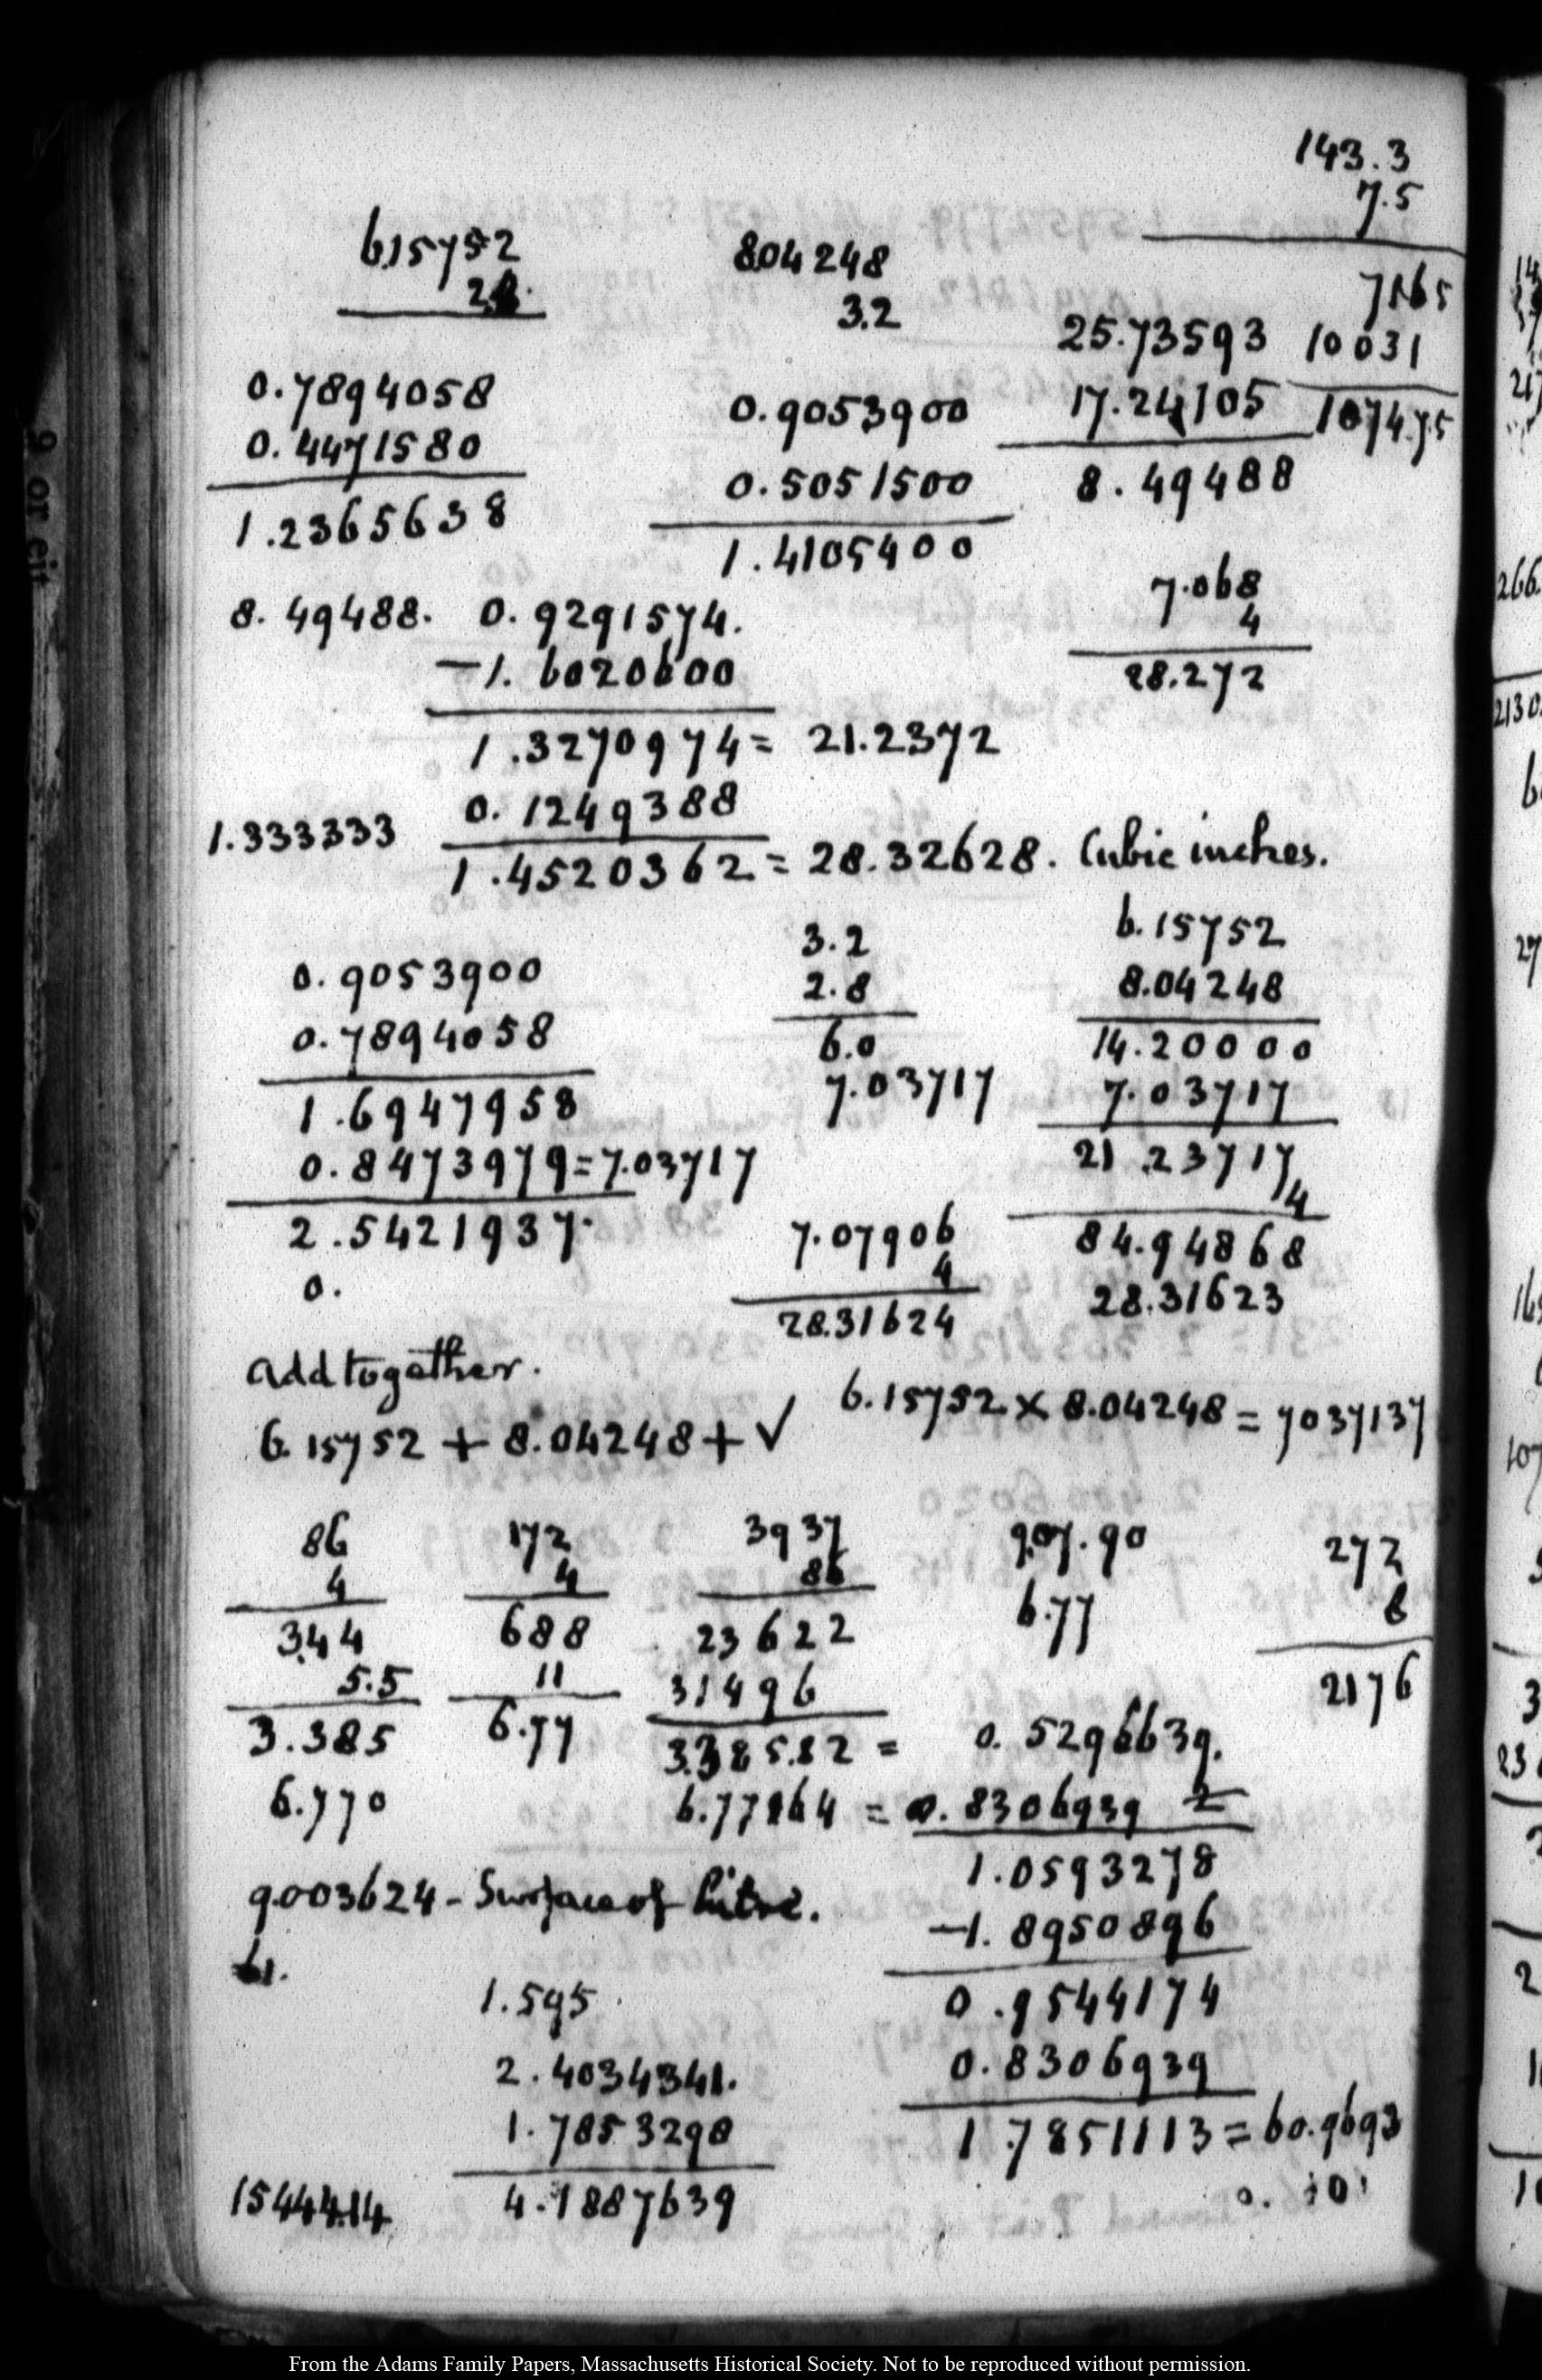 143.3
7.5
7165
10031
1074.75
6.15752
2.8
0.7894058
0.4471580
1.2365638
8.04248
3.2
0.9053900
0.5051500
1.4105400
25.73593
17.24105
8.49488
8.49488. 0.9291574.
-1.6020600
1.3270974 = 21.2372
1.333333 0.1249388
1.4520362 = 28.32628. Cubic inches.
7.068
4
28.272
0.9053900
0.7894058
1.6947958
0.8473979 = 7.03717
2.5421937.
0.
3.2
2.8
6.0
7.03717
6.15752
8.04248
14.20000
7.03717
21.23717
4
84.94868
28.31623
7.07906
4
28.31624
add together.
6.15752 + 8.04248 + √ 6.15752 × 8.04248 = 7037137
86
4
3.44
5.5
3.385
6.770
172
4
688
11
6.77
3937
86
23622
31496
3.385.82 = 0.5296639.
6.77164 = 0.8306939 2
1.0593278
-1.8950896
0.9544174
0.8306939
1.7851113 = 60.9693
0. 101
907.90
6.77
272
8
2176
9.003624 - Surface of Litre.
1.595
2.4034341.
1.7853298
15444.14 4.1887639
9 or eit
From the Adams Family Papers, Massachusetts Historical Society. Not to be reproduced without permission.